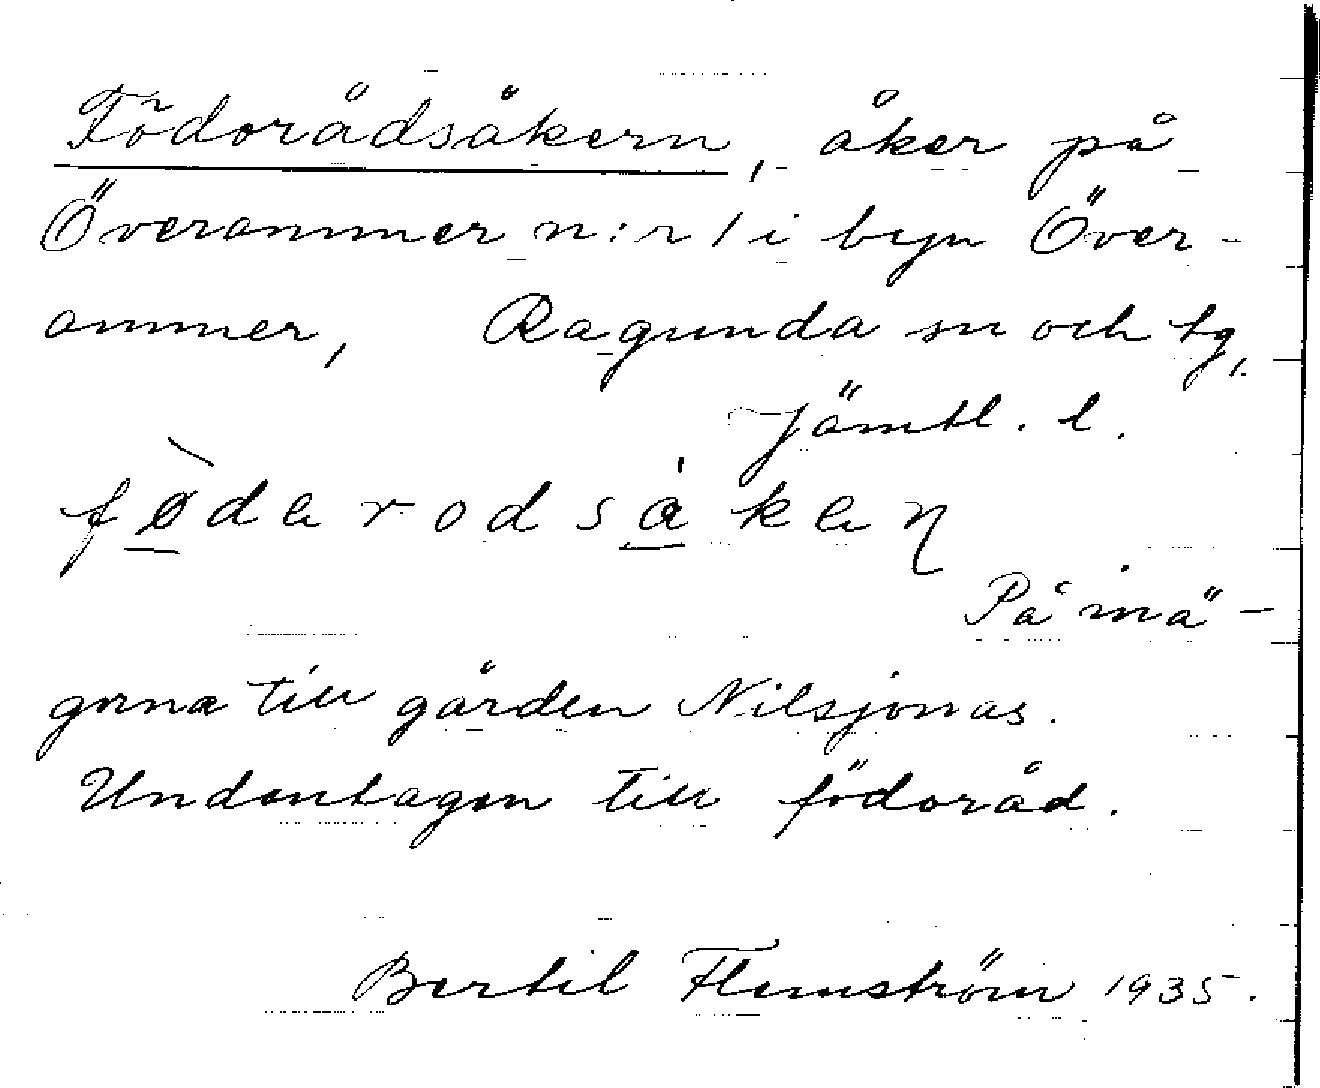 Födorådsåkern, åker på
Överammer n:r 1 i byn Över-
ammer, Ragunda sn och tg,
Jämtl. l.
fø̀darodsákaɳ
På inä-
gorna till gården Nilsjonas.
Undantagen till födoråd.
Bertil Flemström 1935.